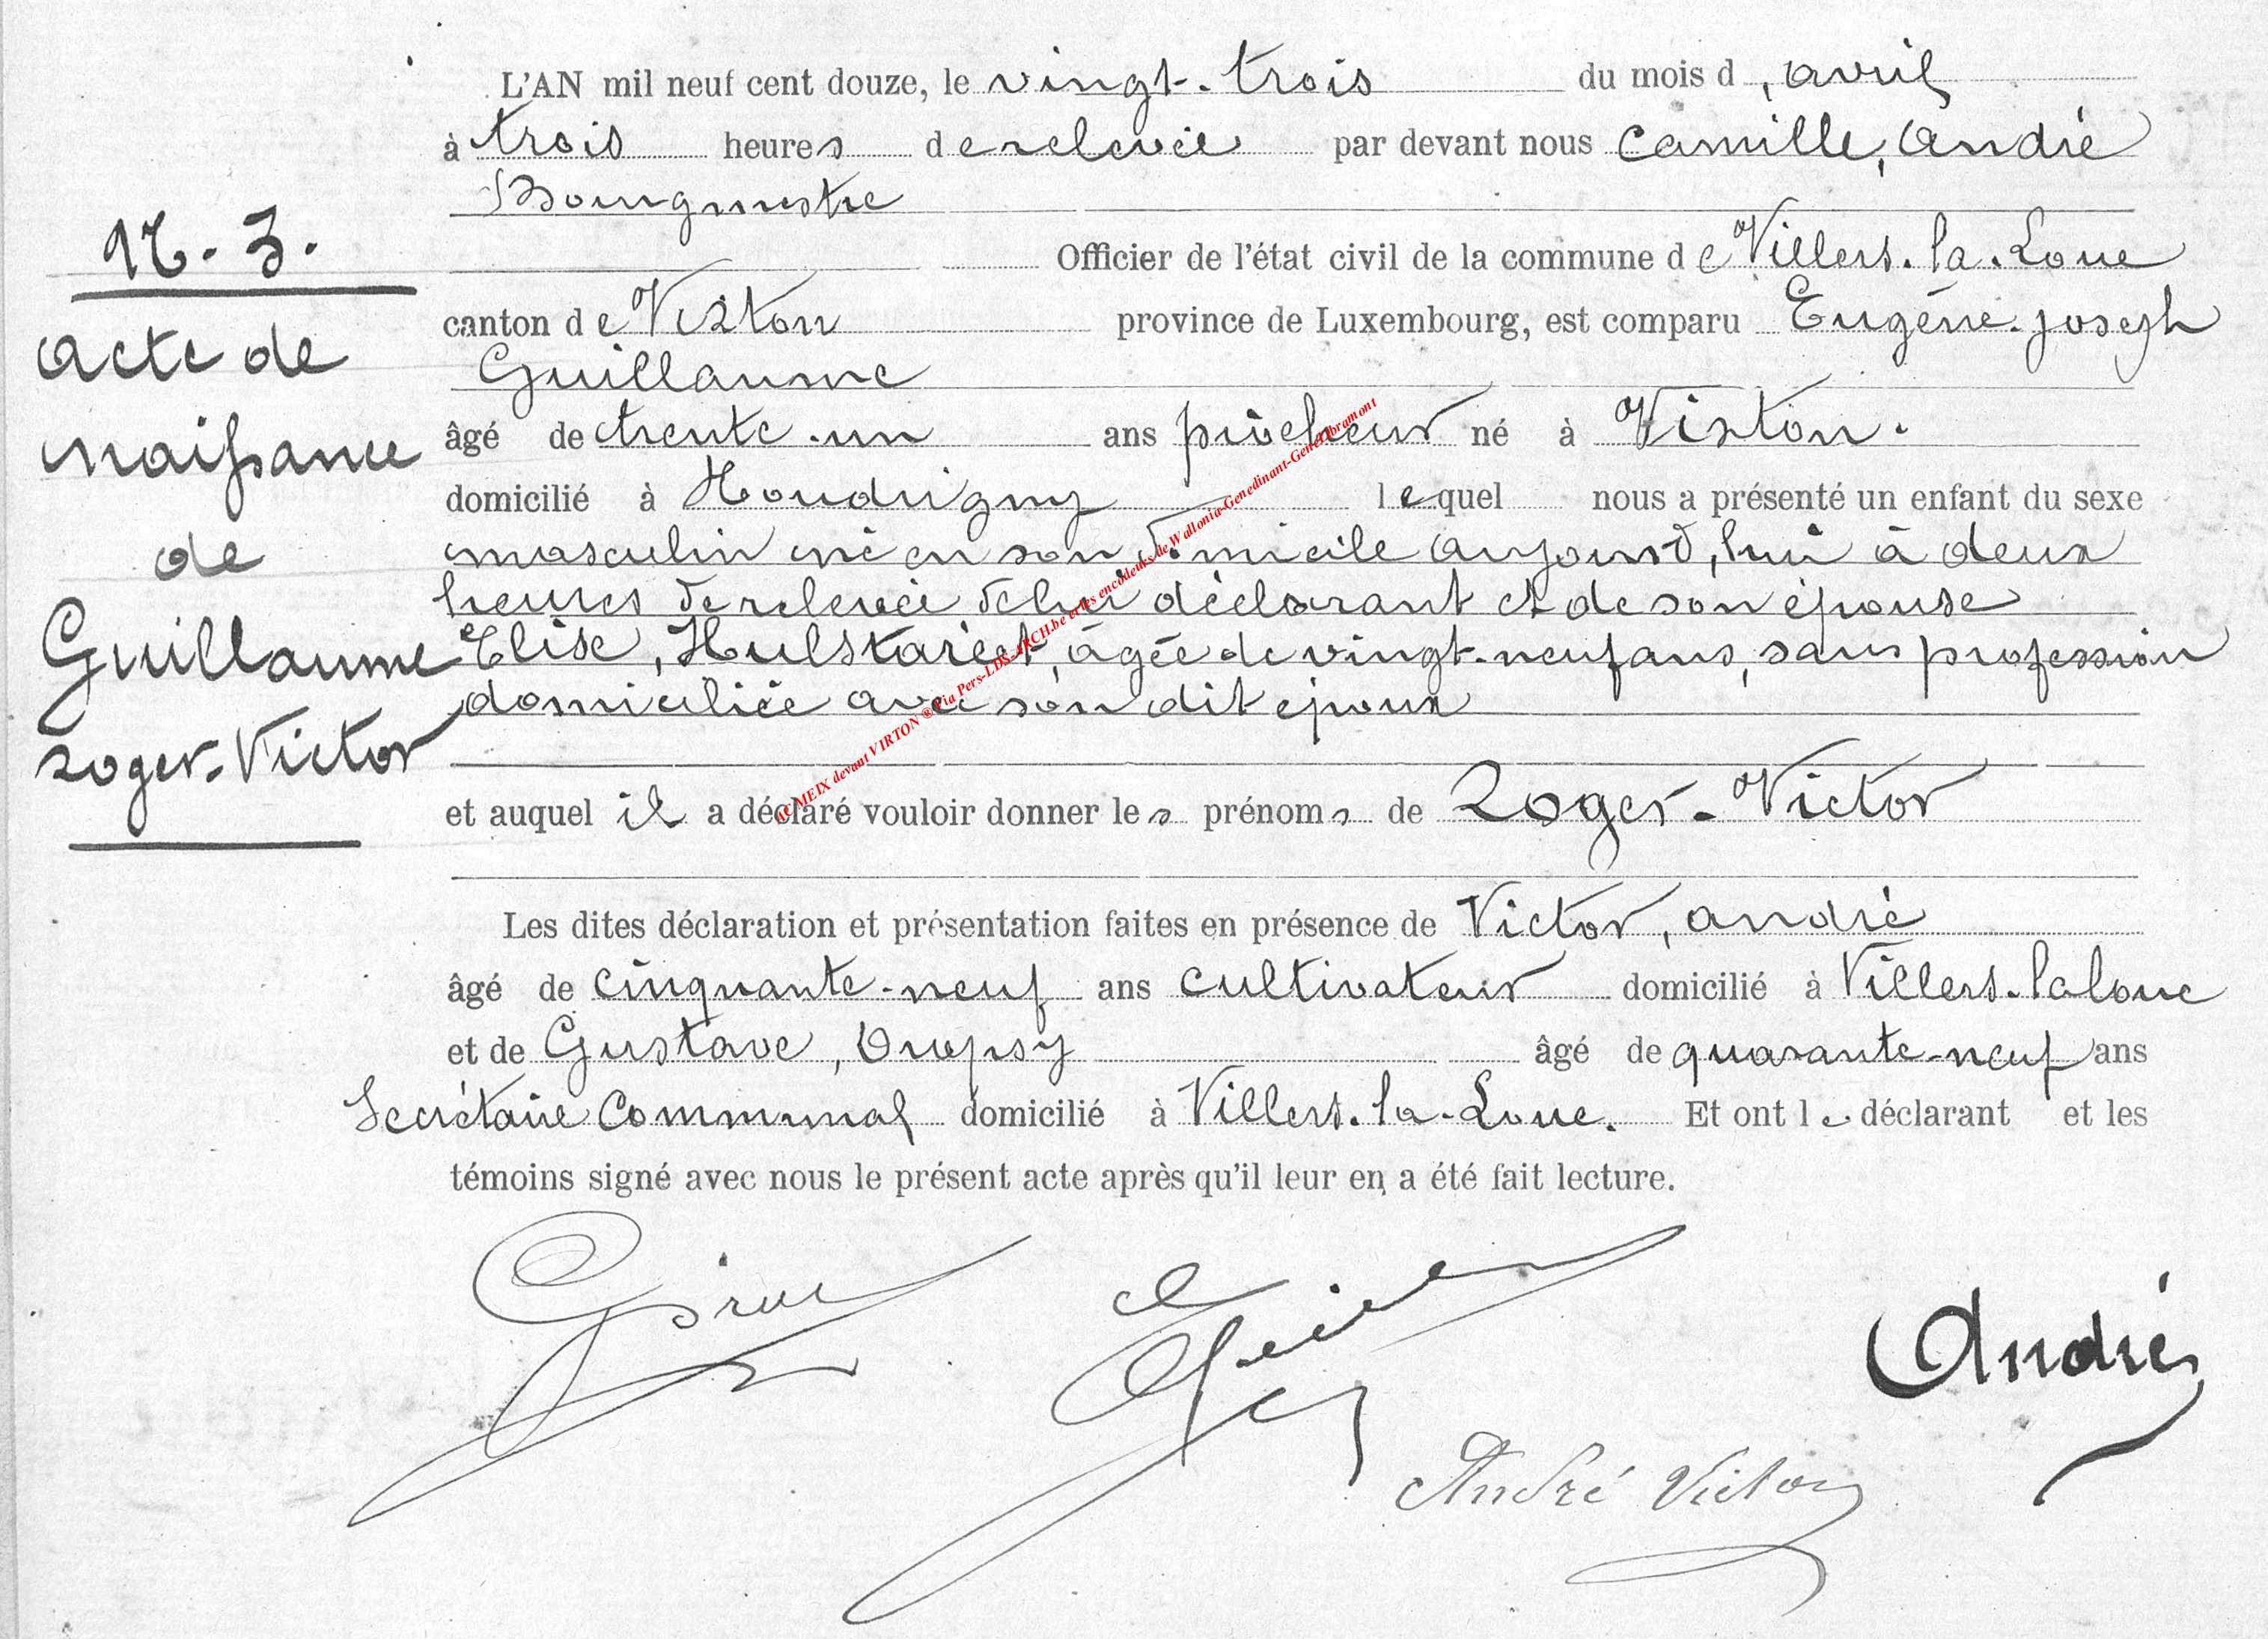 L'AN mil neuf cent douze, le vingt-trois du mois d'avril
à trois heures de relevée par devant nous Camille, André
Bourgmestre
N. 3.
Officier de l'état civil de la commune de Villers-la-Loue
canton de Virton province de Luxembourg, est comparu Eugène-joseph
Guillaume
acte de
naissance
de
Guillaume
roger-Victor
âgé de trente-un ans piocheur né à Virton.
domicilié à Houdrigny lequel nous a présenté un enfant du sexe
masculin né en son domicile aujourd'hui à deux
heures de relevée de lui déclarant et de son épouse
Elise, Hulstaert, âgée de vingt-neuf ans, sans profession
domiciliée avec son dit époux
et auquel il a déclaré vouloir donner les prénoms de Roger-Victor
Les dites déclaration et présentation faites en présence de Victor, andré
âgé de cinquante-neuf ans cultivateur domicilié à Villers-la loue
et de Gustave, Dropsy âgé de quarante-neuf ans
Secrétaire Communal domicilié à Villers-la-Loue. Et ont le déclarant et les
témoins signé avec nous le présent acte après qu'il leur en a été fait lecture.
André
André Victor
AC MEIX devant VIRTON ® Via Pers-LDS-ARCH.be et les encodeurs de Wallonia-Genedinant-GeneLibramont